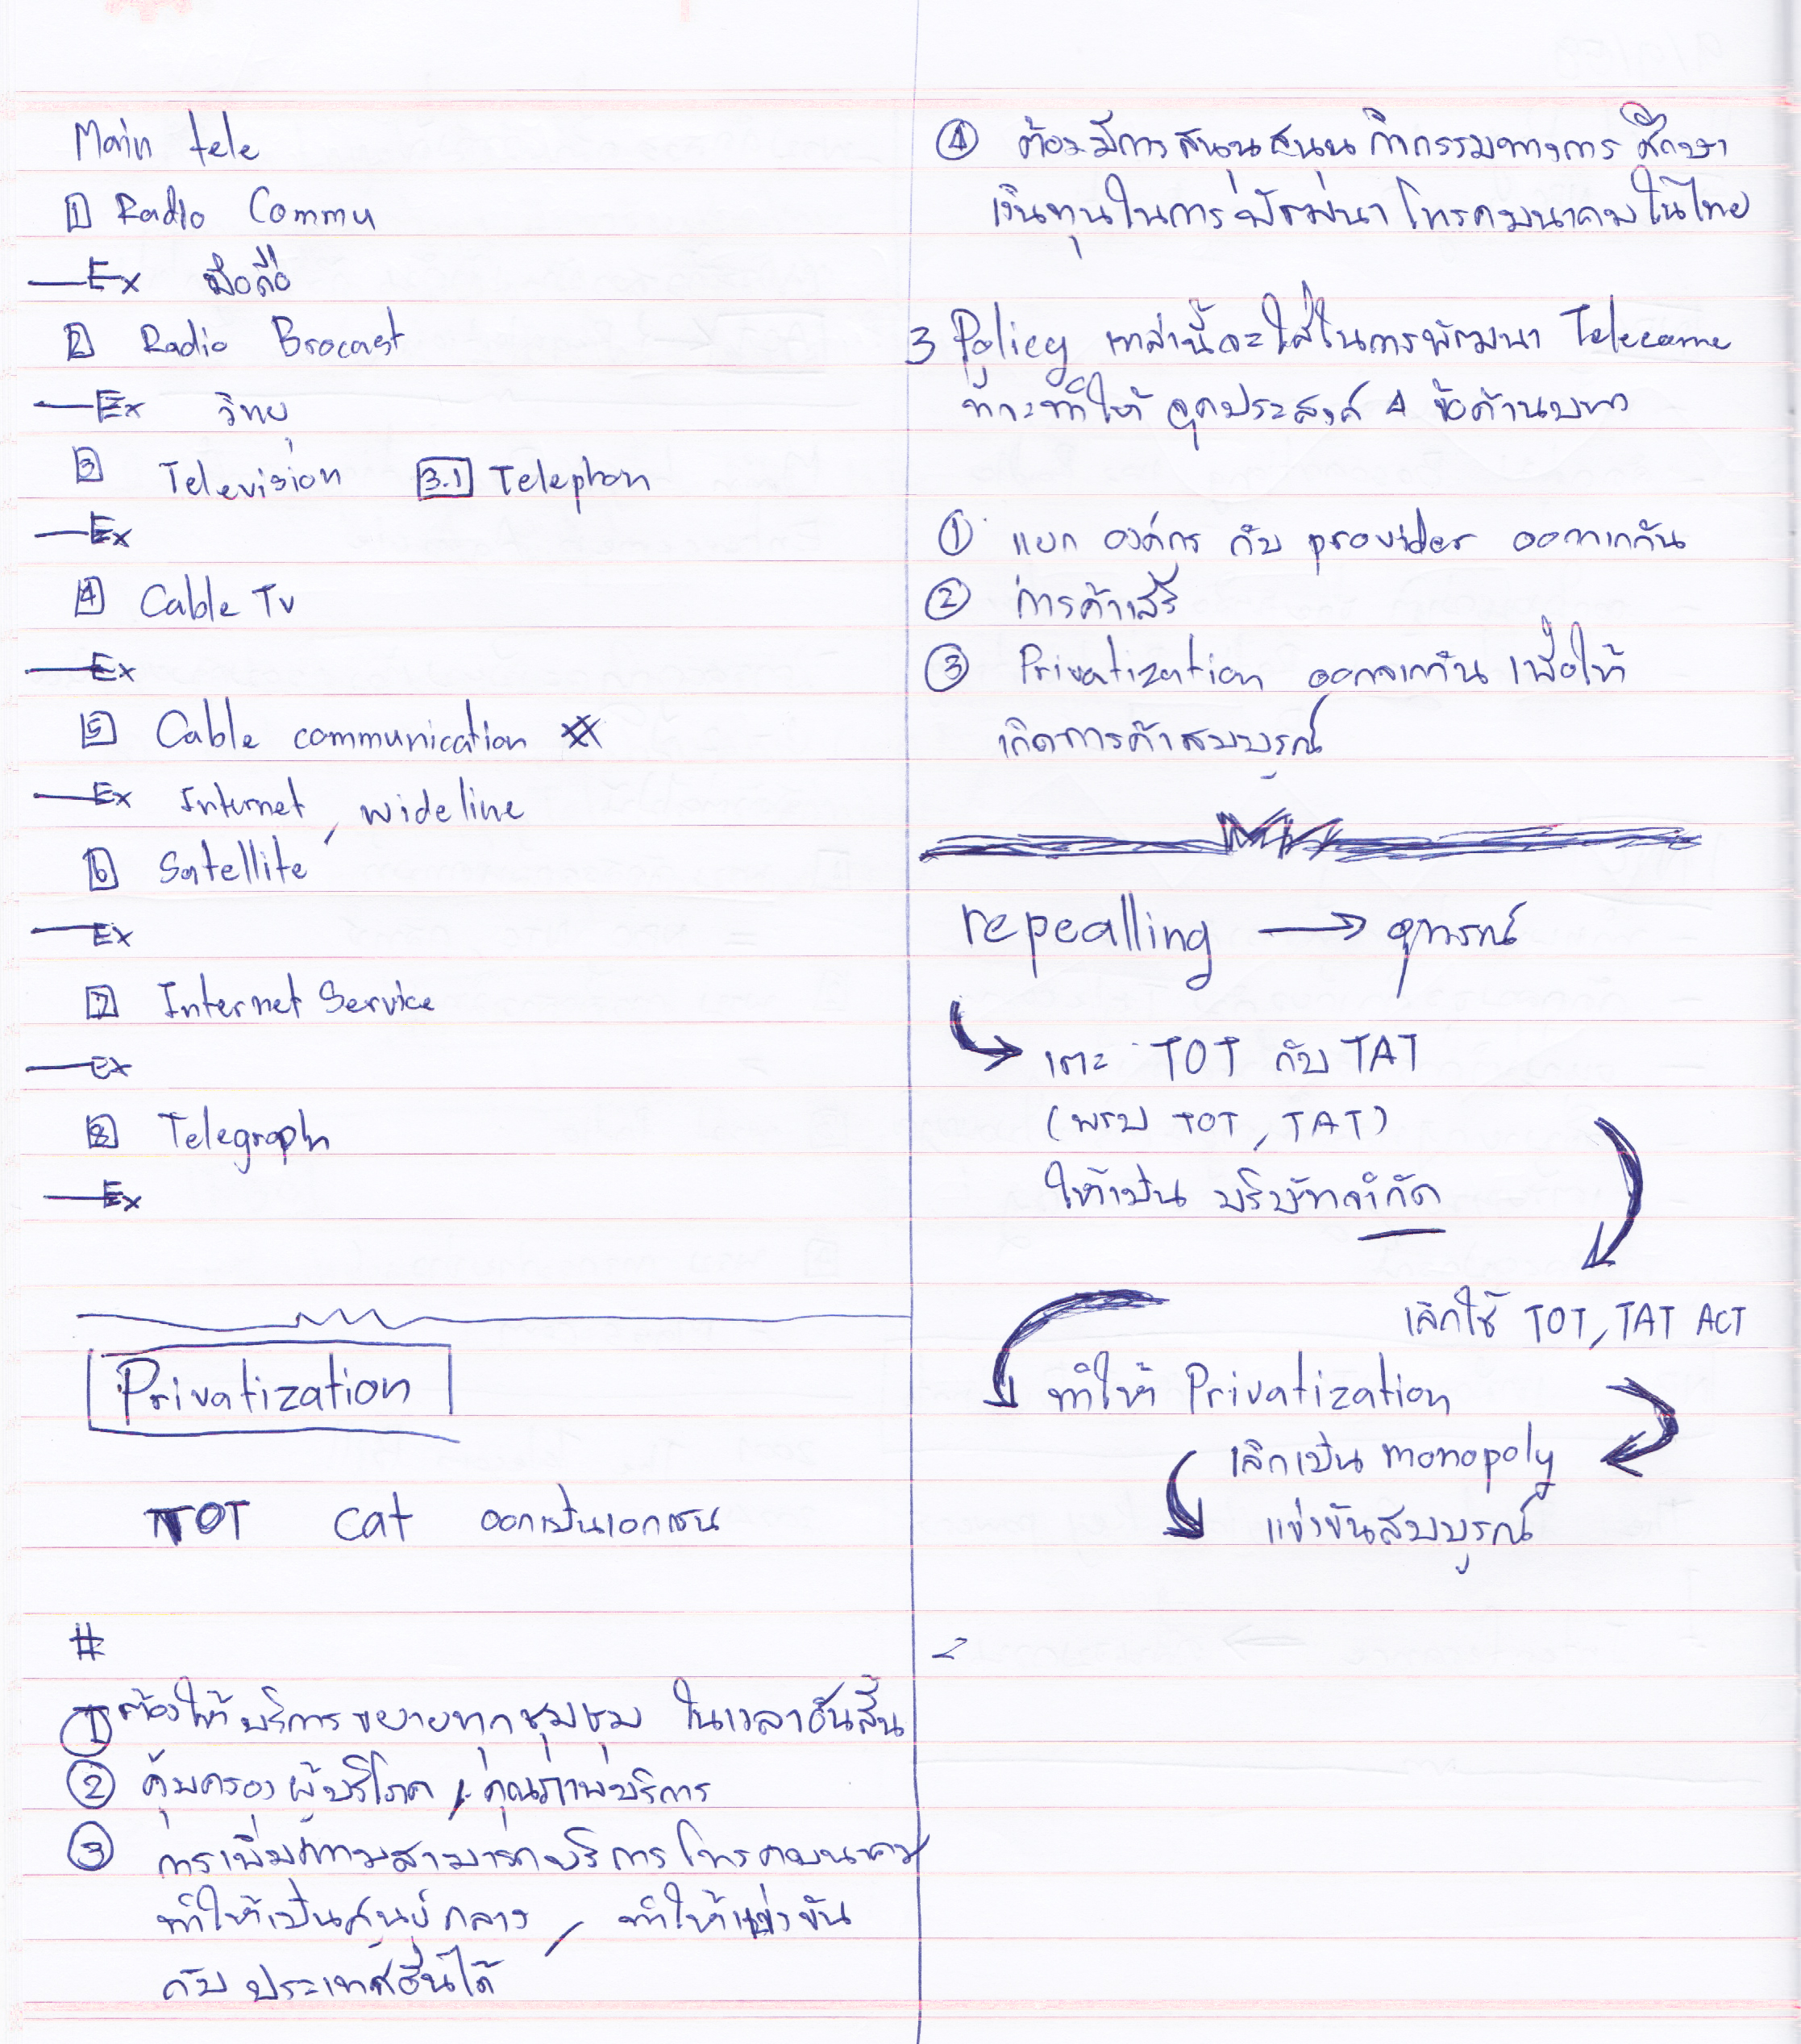 Main tele
1 Radio Commu
Ex มือถือ
2 Radio Brocast
Ex วิทยุ
3 Television 3.1 Telephon
Ex
4 Cable Tv
Ex
5 Cable communication
Ex Internet, wideline
6 Satellite
Ex
7 Internet Service
ex
8 Telegraph
Ex
Privatization
TOT cat ออกเป็นเอกชน
#
1 ต้องให้บริการขยายทุกชุมชน ในเวลาอันสั้น
2 คุ้มครองผู้บริโภค, คุณภาพบริการ
3 การเพิ่มความสามารถบริการโทรคมนาคม
ทำให้เป็นศูนย์กลาง, ทำให้แข่งขัน
กับประเทศอื่นได้
4 ต้องมีการสนุนสนุน กิจกรรมทางการศึกษา
เงินทุนในการพัฒนาโทรคมนาคมในไทย
3 Policy เหล่านี้จะใส่ในการพัฒนา Telecome
ที่จะทำให้ จุดประสงค์ 4 ข้อด้านบน
1 แยก องค์กร กับ provider ออกจากกัน
2 การค้าเสรี
3 Privatization ออกจากกัน เพื่อให้
เกิดการค้าสมบูรณ์
repealling → อุทรณ์
เตะ TOT กับ TAT
(พรบ TOT, TAT)
ให้เป็น บริษัทจำกัด
เลิกใช้ TOT, TAT ACT
ทำให้ Privatization
เลิกเป็น monopoly
แข่งขันสมบูรณ์